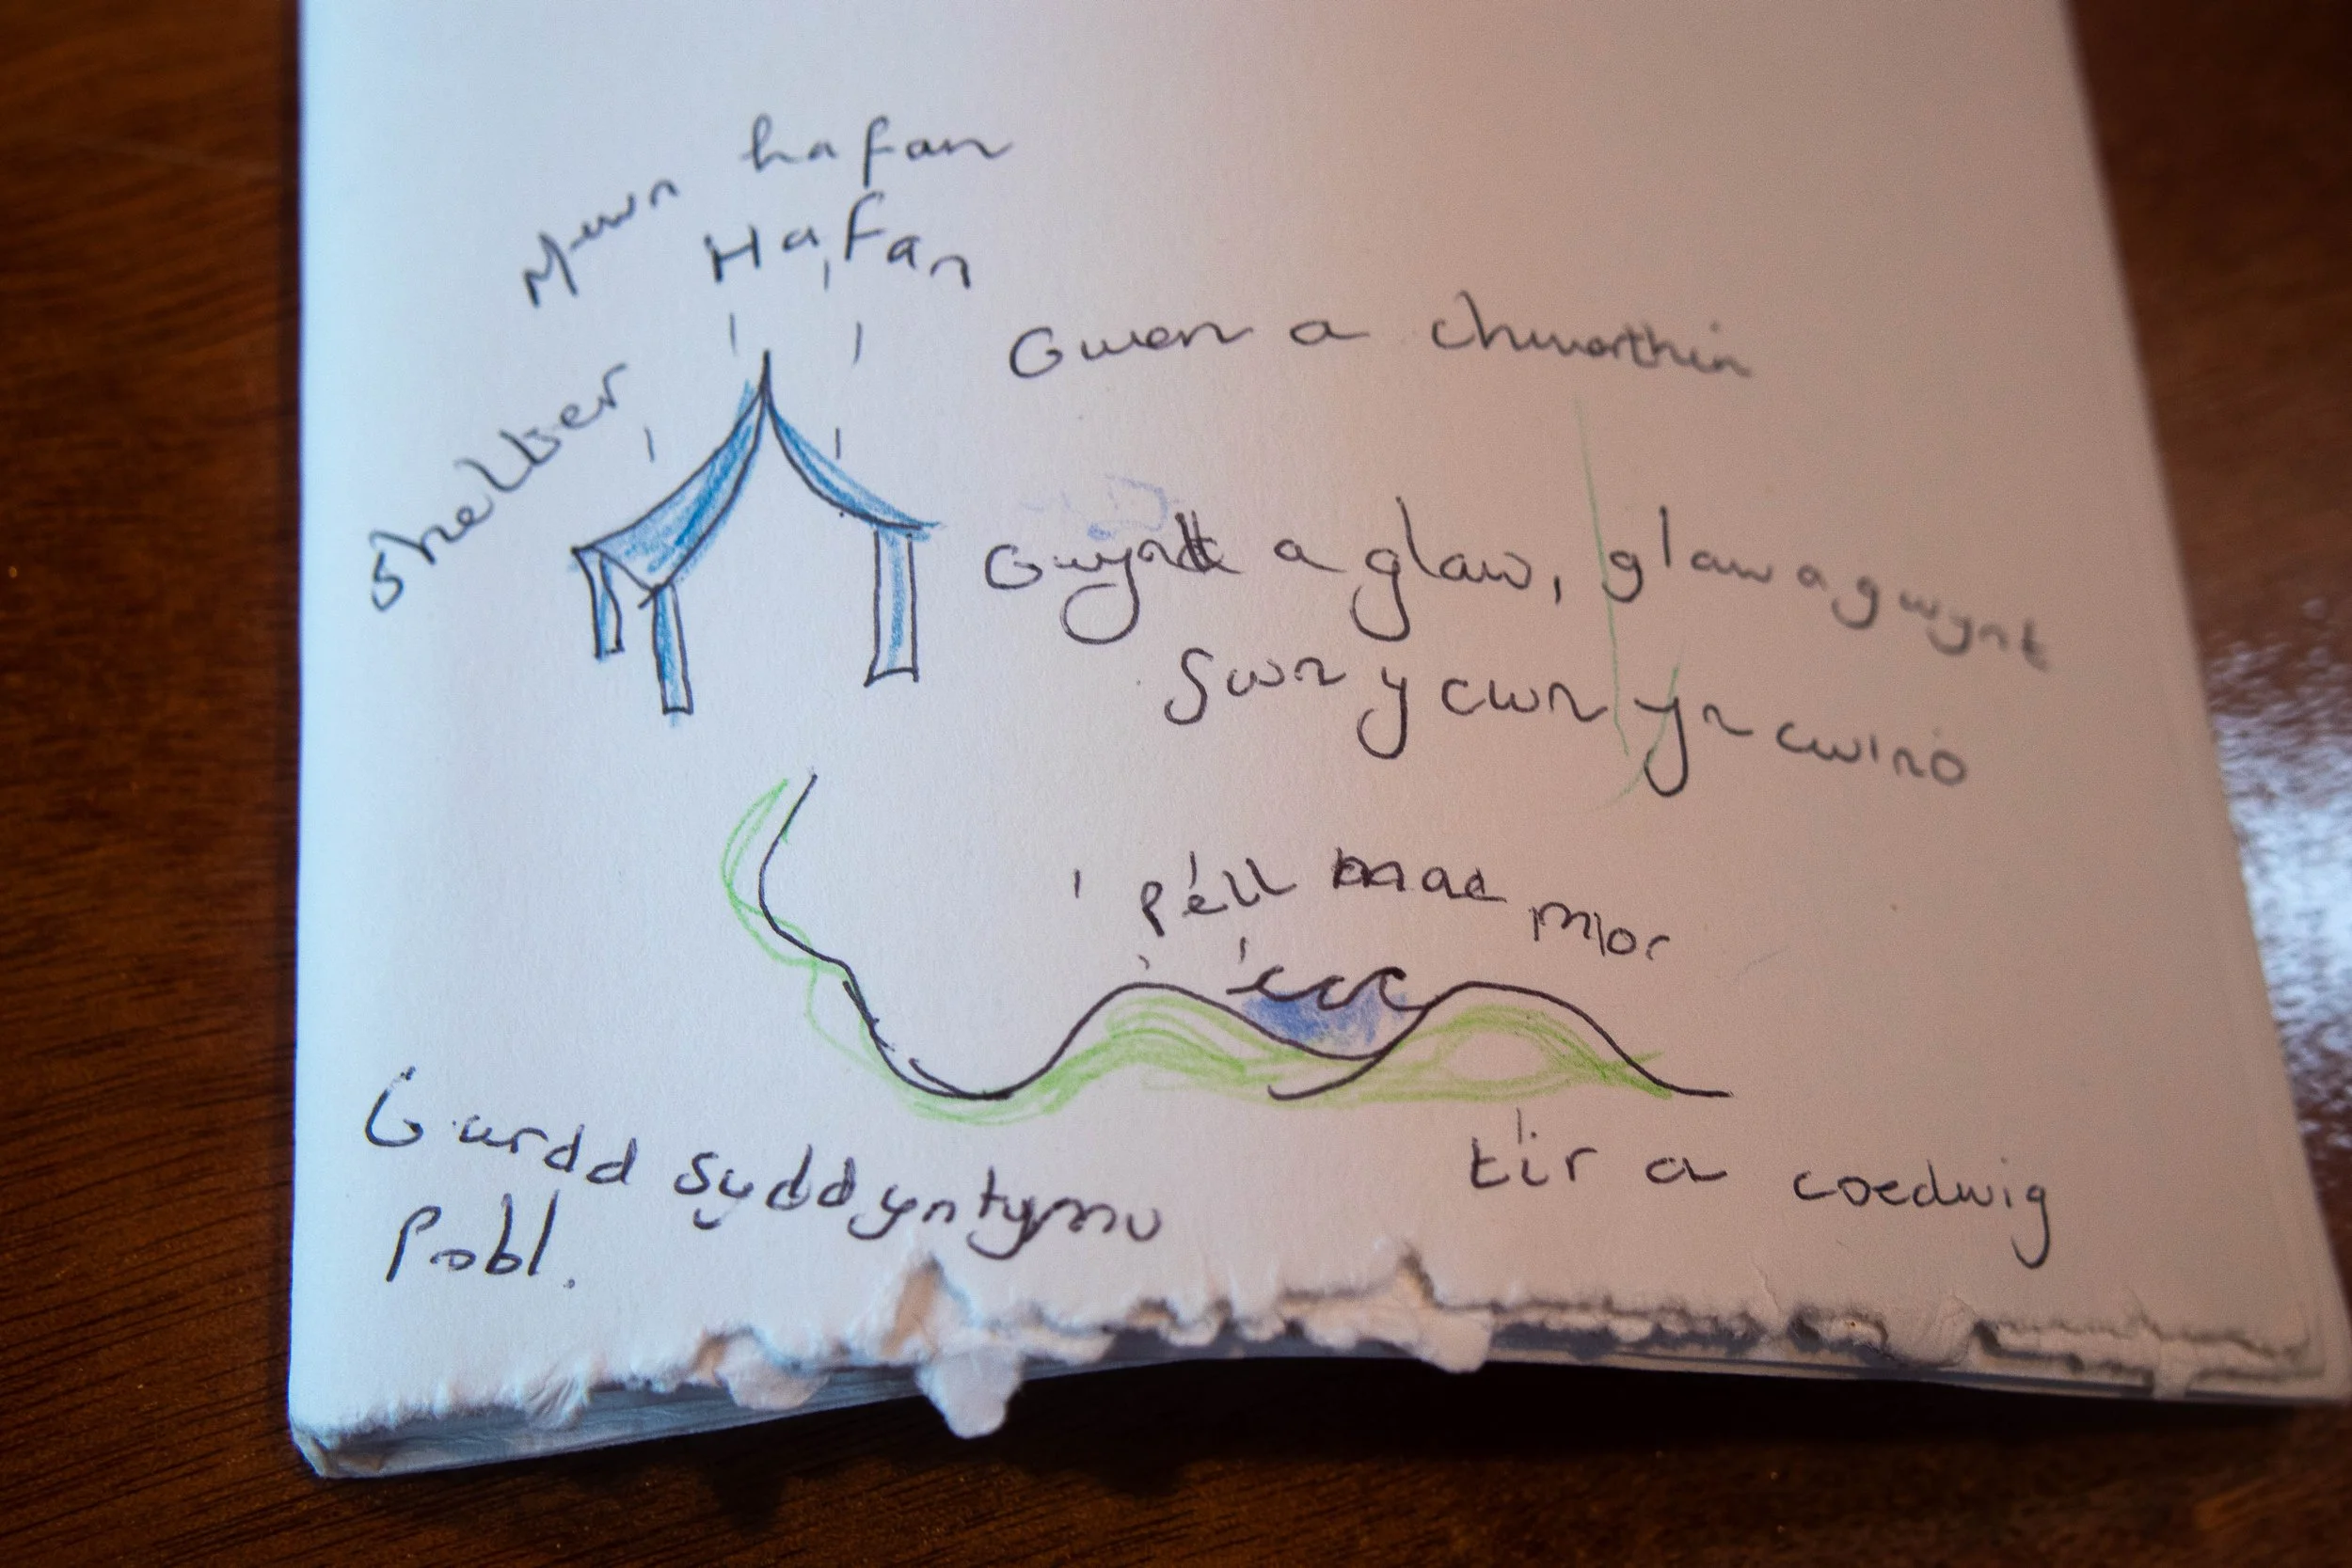 Mewn hafan
Hafan
shelter
Gwen a chwarthin
Gwynt a glaw, glaw a gwynt
Swn y cwn yn cwino
Pell mae mor
tir a coedwig
Gwrdd sydd yn tynnu
Pobl.